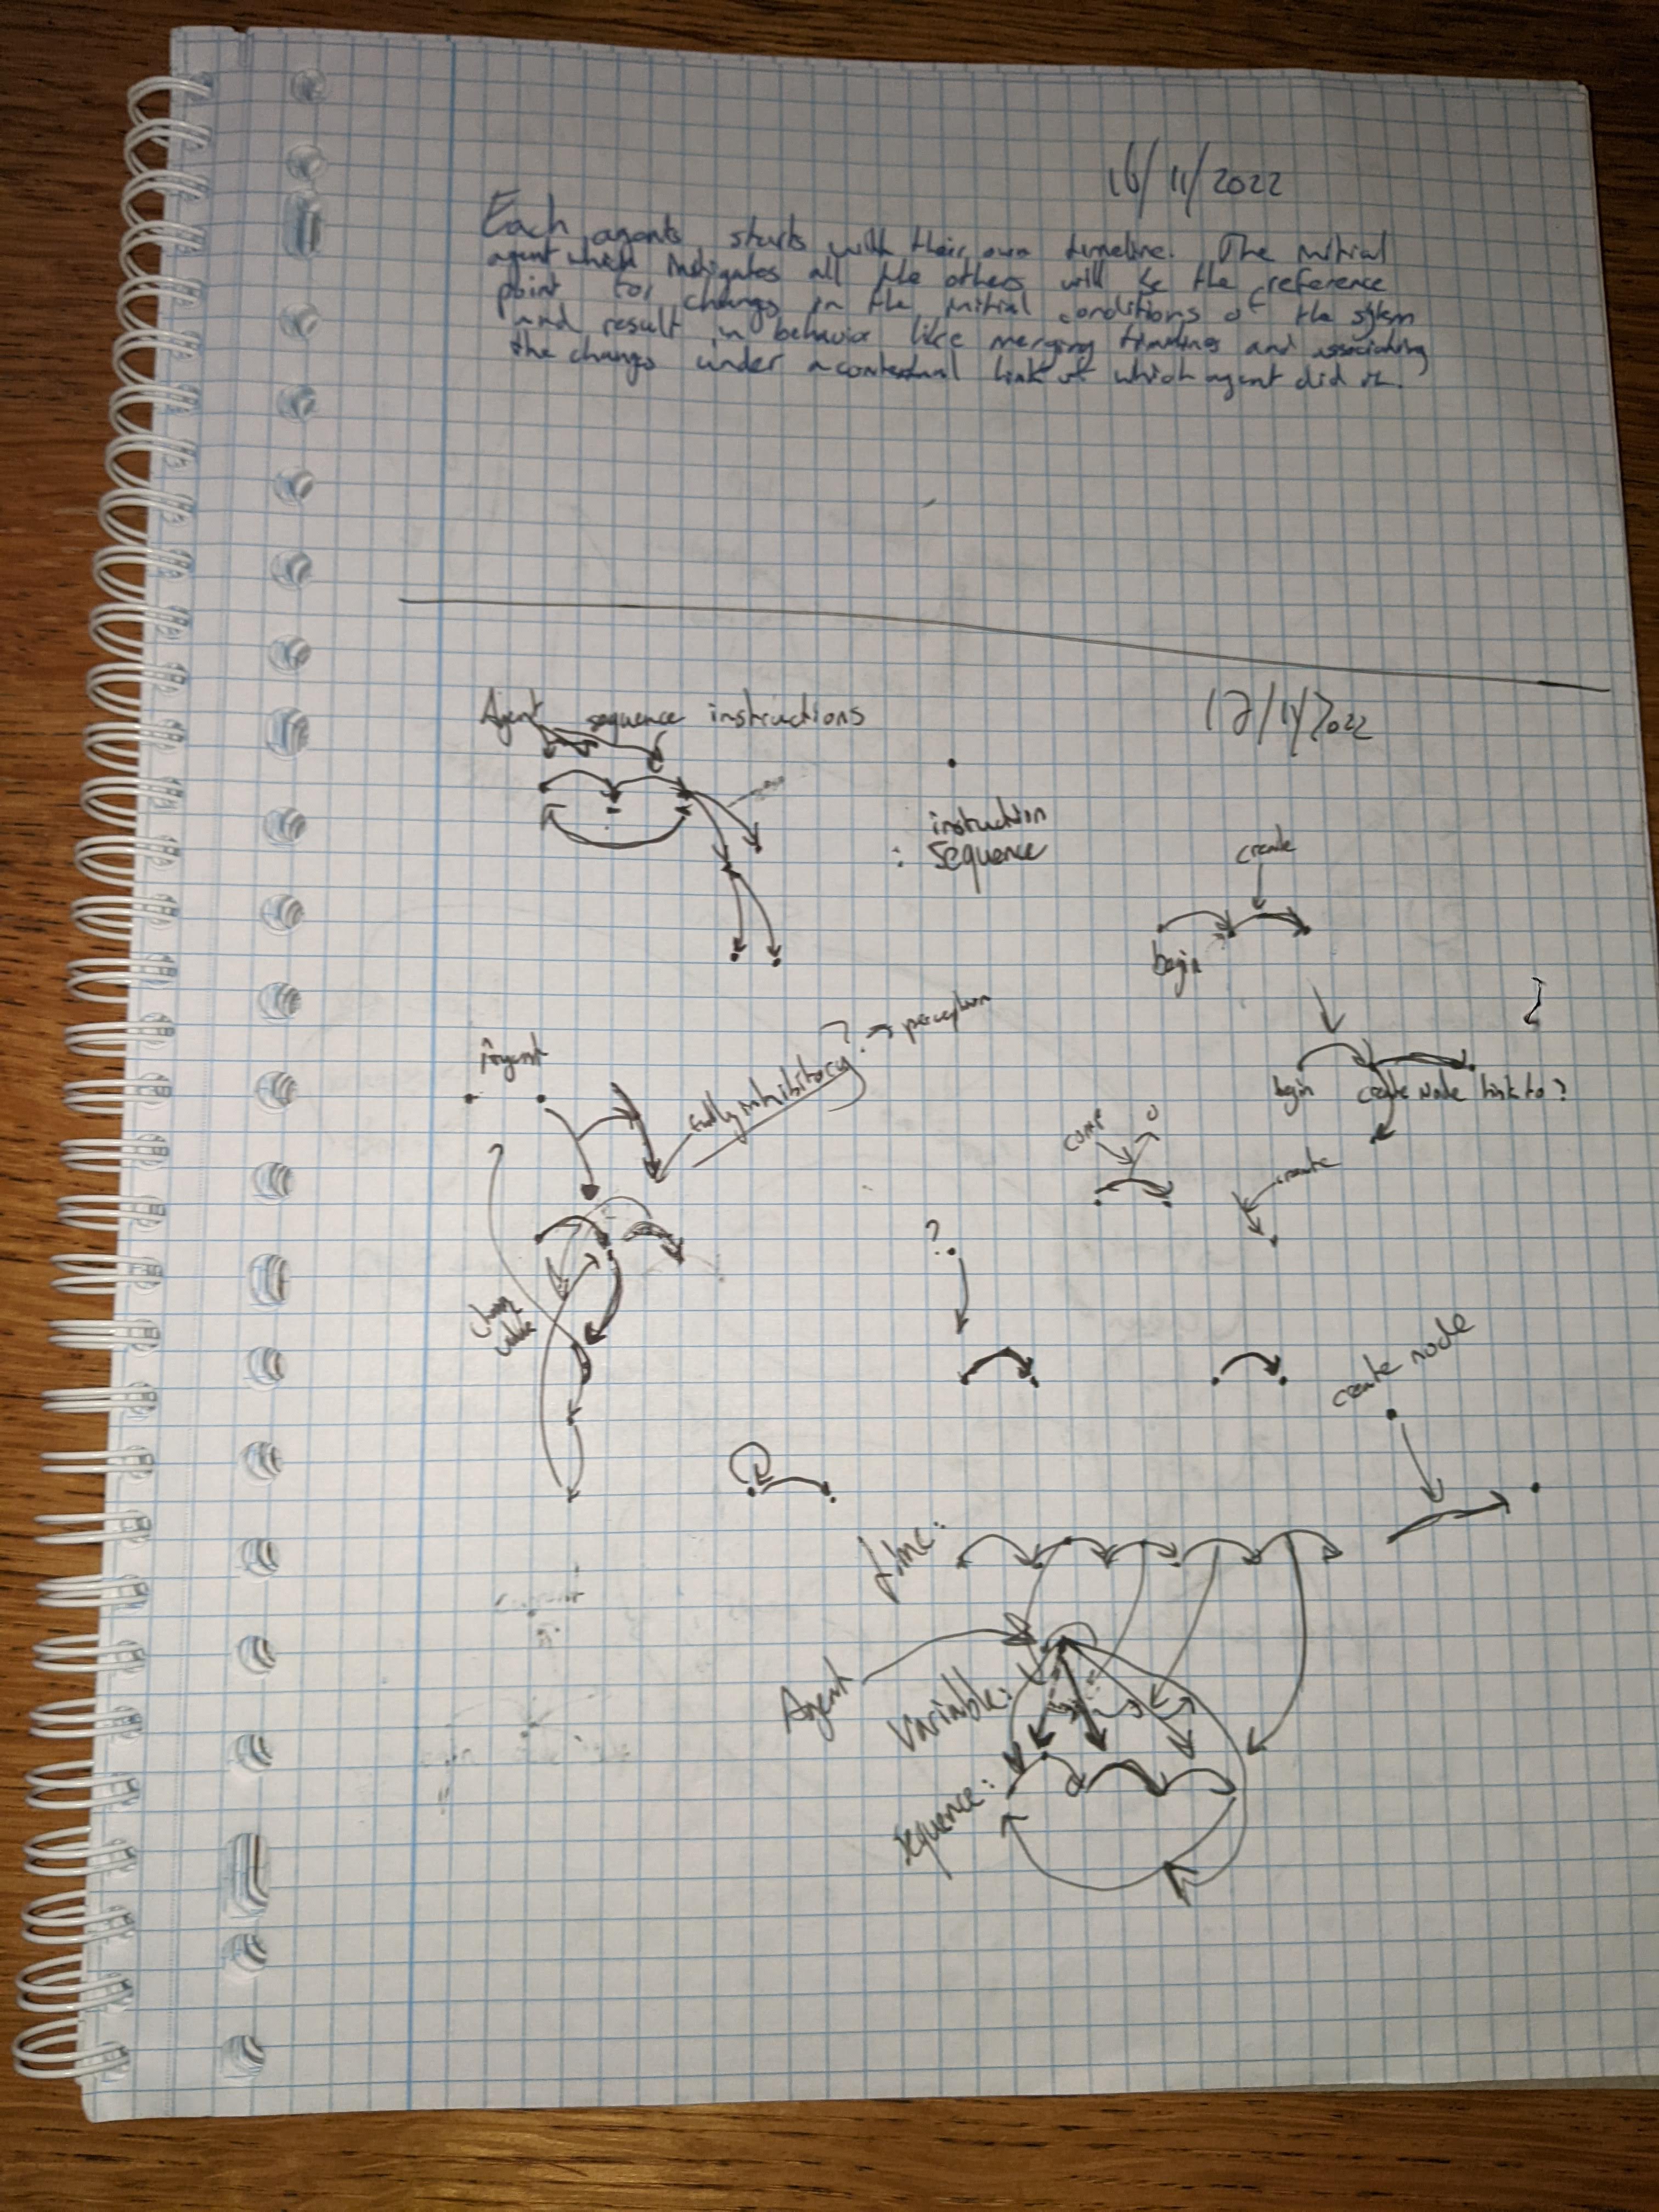 16/11/2022
Each agents starts with their own timeline. The initial
agent which instigates all the others will be the reference
point for changes in the initial conditions of the system
and result in behavior like merging timelines and associating
the changes under a contextual link of which agent did it.
17/11/2022
Agent sequence instructions
instruction
: sequence
create
begin
Agent
fully inhibitory? → perception
begin create node link to?
comp
create
?
change
value
create node
time:
Agent
variable:
sequence: